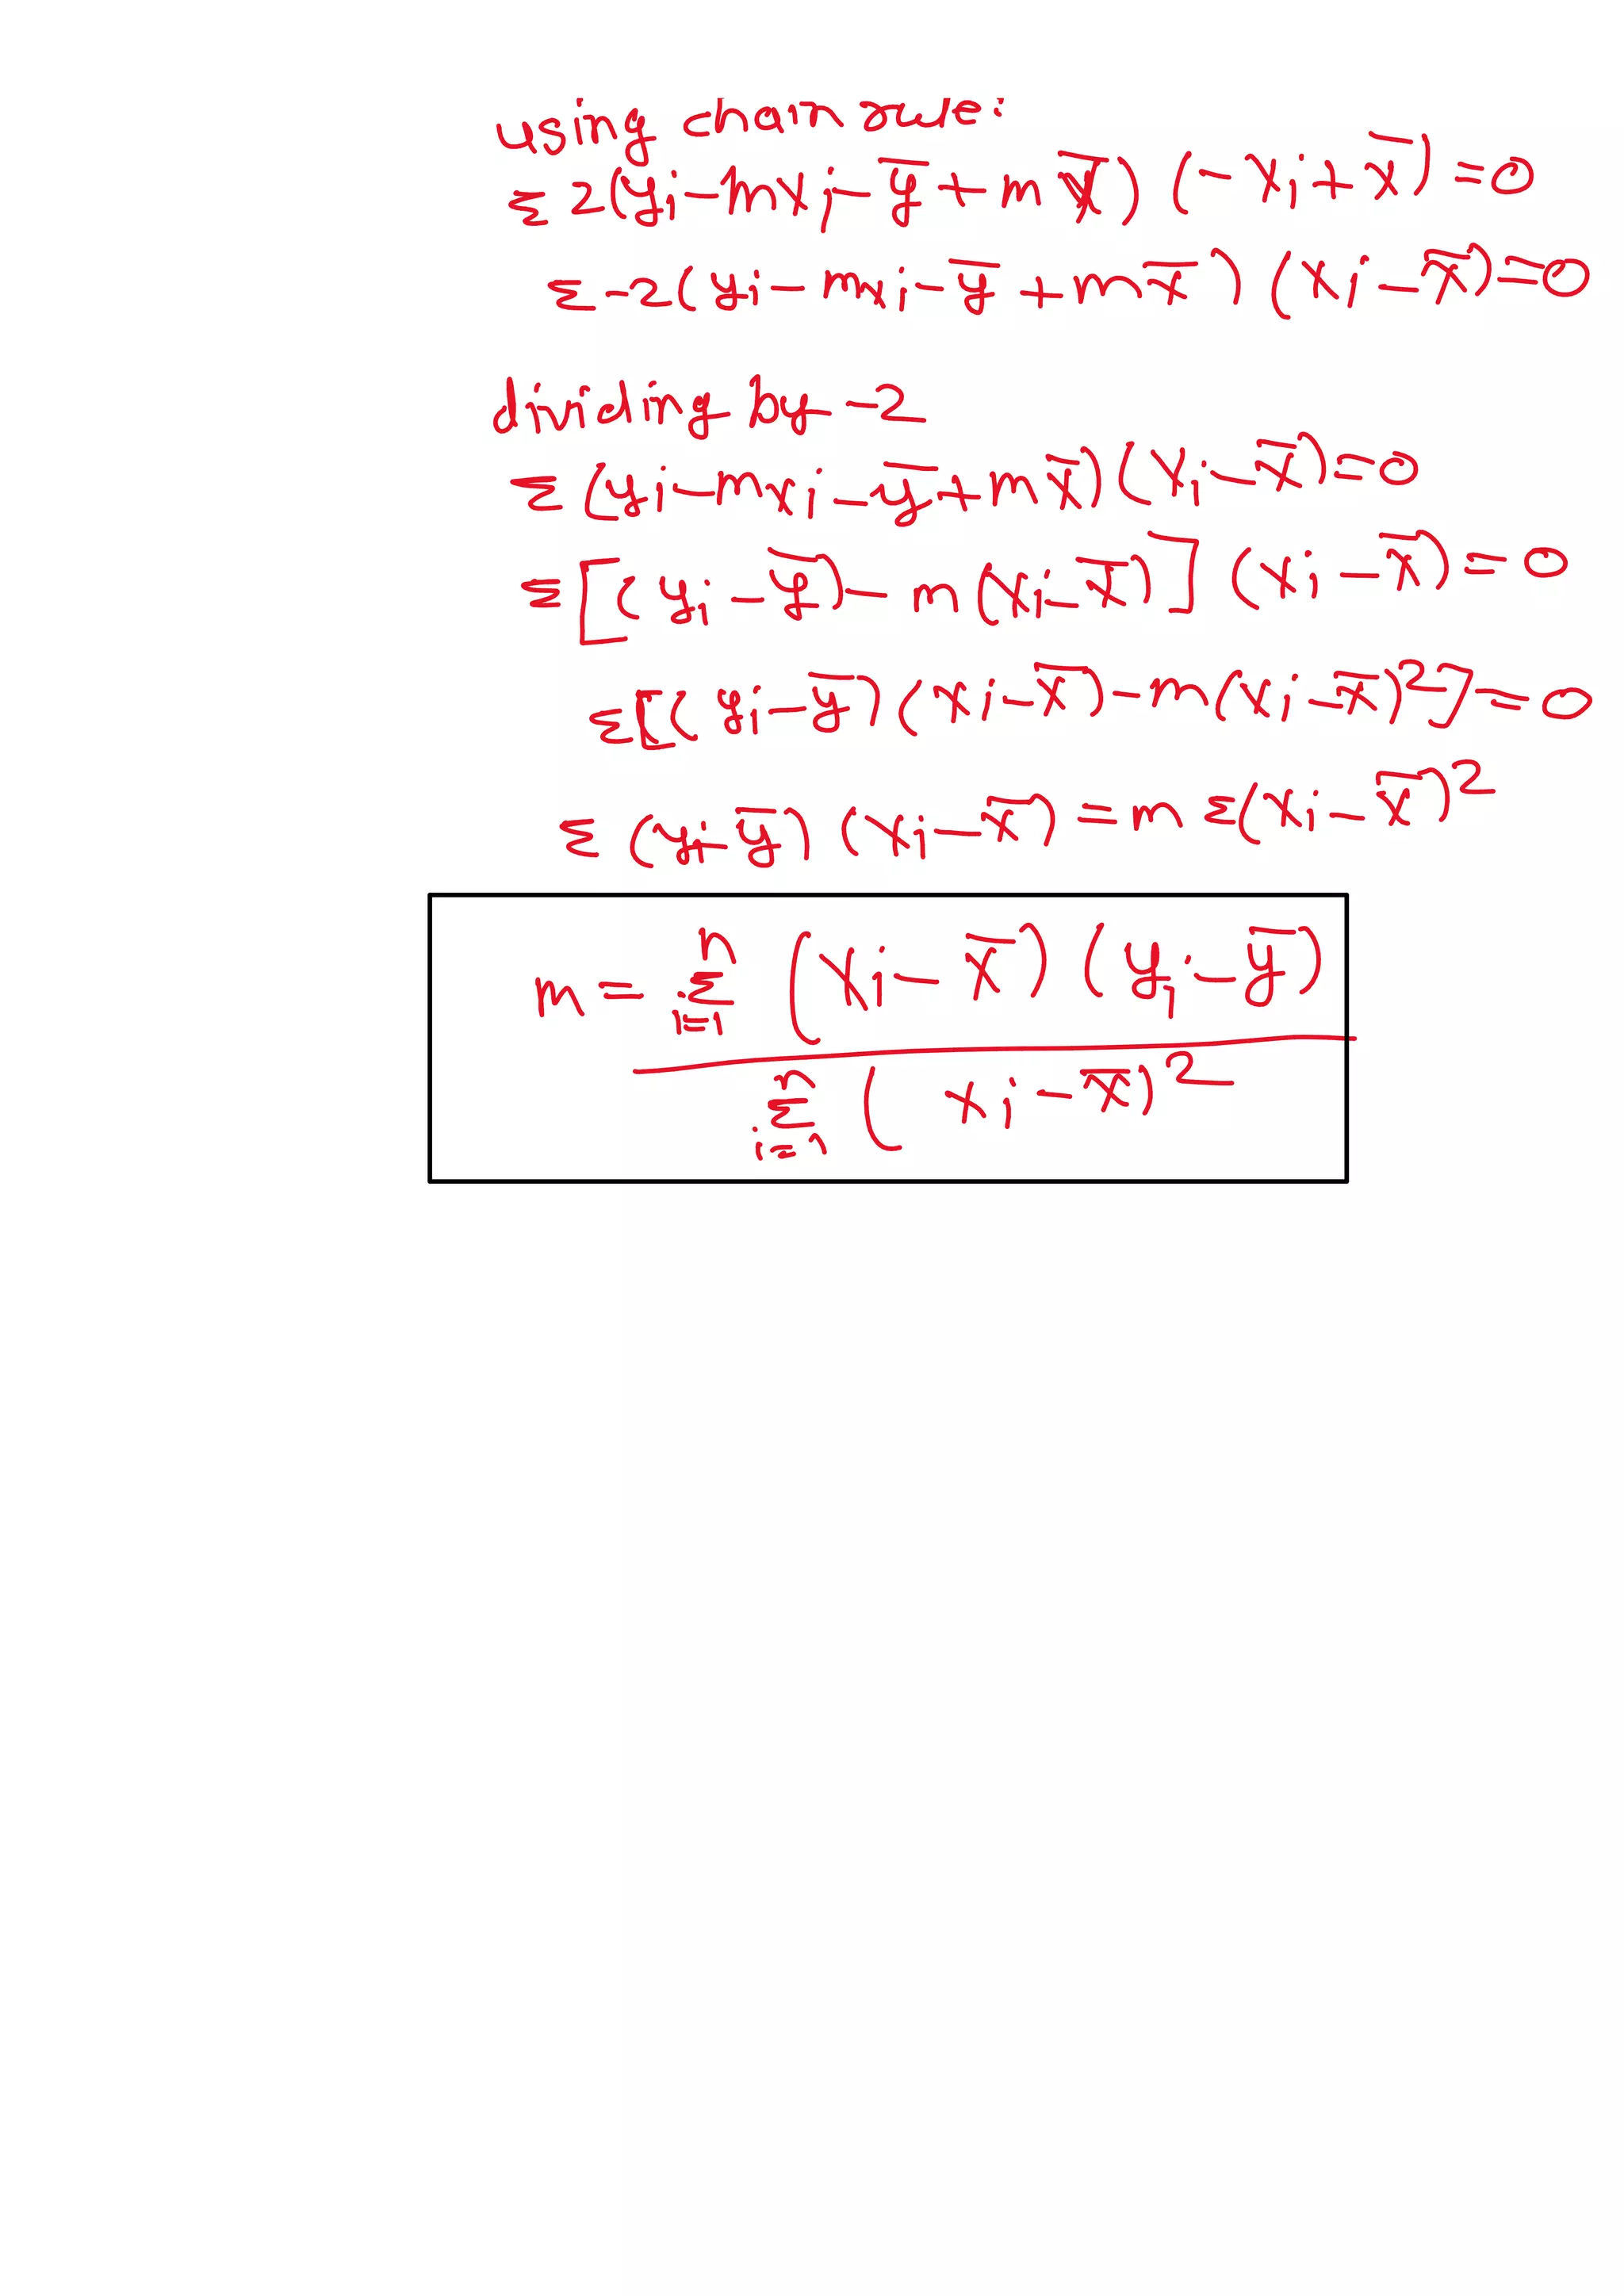 using chain rule:
Σ 2(yi - mxi - ȳ + mx̄) (-xi + x̄) = 0
Σ -2(yi - mxi - ȳ + mx̄) (xi - x̄) = 0
dividing by -2
Σ (yi - mxi - ȳ + mx̄) (xi - x̄) = 0
Σ [(yi - ȳ) - m(xi - x̄)] (xi - x̄) = 0
Σ [(yi - ȳ) (xi - x̄) - m(xi - x̄)²] = 0
Σ (yi - ȳ) (xi - x̄) = m Σ(xi - x̄)²
n
m = Σ (xi - x̄) (yi - ȳ)
i=1
n
Σ (xi - x̄)²
i=1